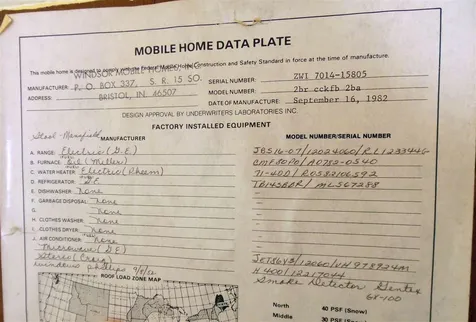 MOBILE HOME DATA PLATE
This mobile home is designed to comply with the Federal Mobile Home Construction and Safety Standard in force at the time of manufacture.
WINDSOR MOBILE HOMES, INC.
MANUFACTURER: P. O. BOX 337, S. R. 15 SO.
ADDRESS: BRISTOL, IN. 46507
SERIAL NUMBER: ZW1 7014-15805
MODEL NUMBER: 2br cckfb 2ba
DATE OF MANUFACTURE: September 16, 1982
DESIGN APPROVAL BY UNDERWRITERS LABORATORIES INC.
FACTORY INSTALLED EQUIPMENT
MANUFACTURER
MODEL/SERIAL NUMBER
A. RANGE: Electric (G.E.)
B. FURNACE: Oil (Miller)
C. WATER HEATER: Electric (Rheem)
D. REFRIGERATOR: G.E.
E. DISHWASHER: None
F. GARBAGE DISPOSAL: None
G. None
H. CLOTHES WASHER: None
I. CLOTHES DRYER: None
J. AIR CONDITIONER: None
Microwave (G.E.)
Stereo (Craig)
CMF80PO / A0782-0540
71-40D / R0582106592
TB14SBDR / ML567288
H400 / 12217044
Smoke Detector Gentex
ROOF LOAD ZONE MAP
North 40 PSF (Snow)
Middle 30 PSF (Snow)